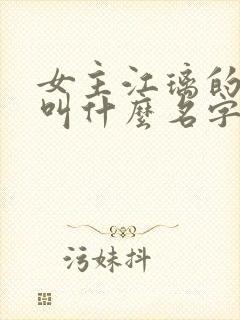 女主江璃的
叫什麼名字
污妹抖